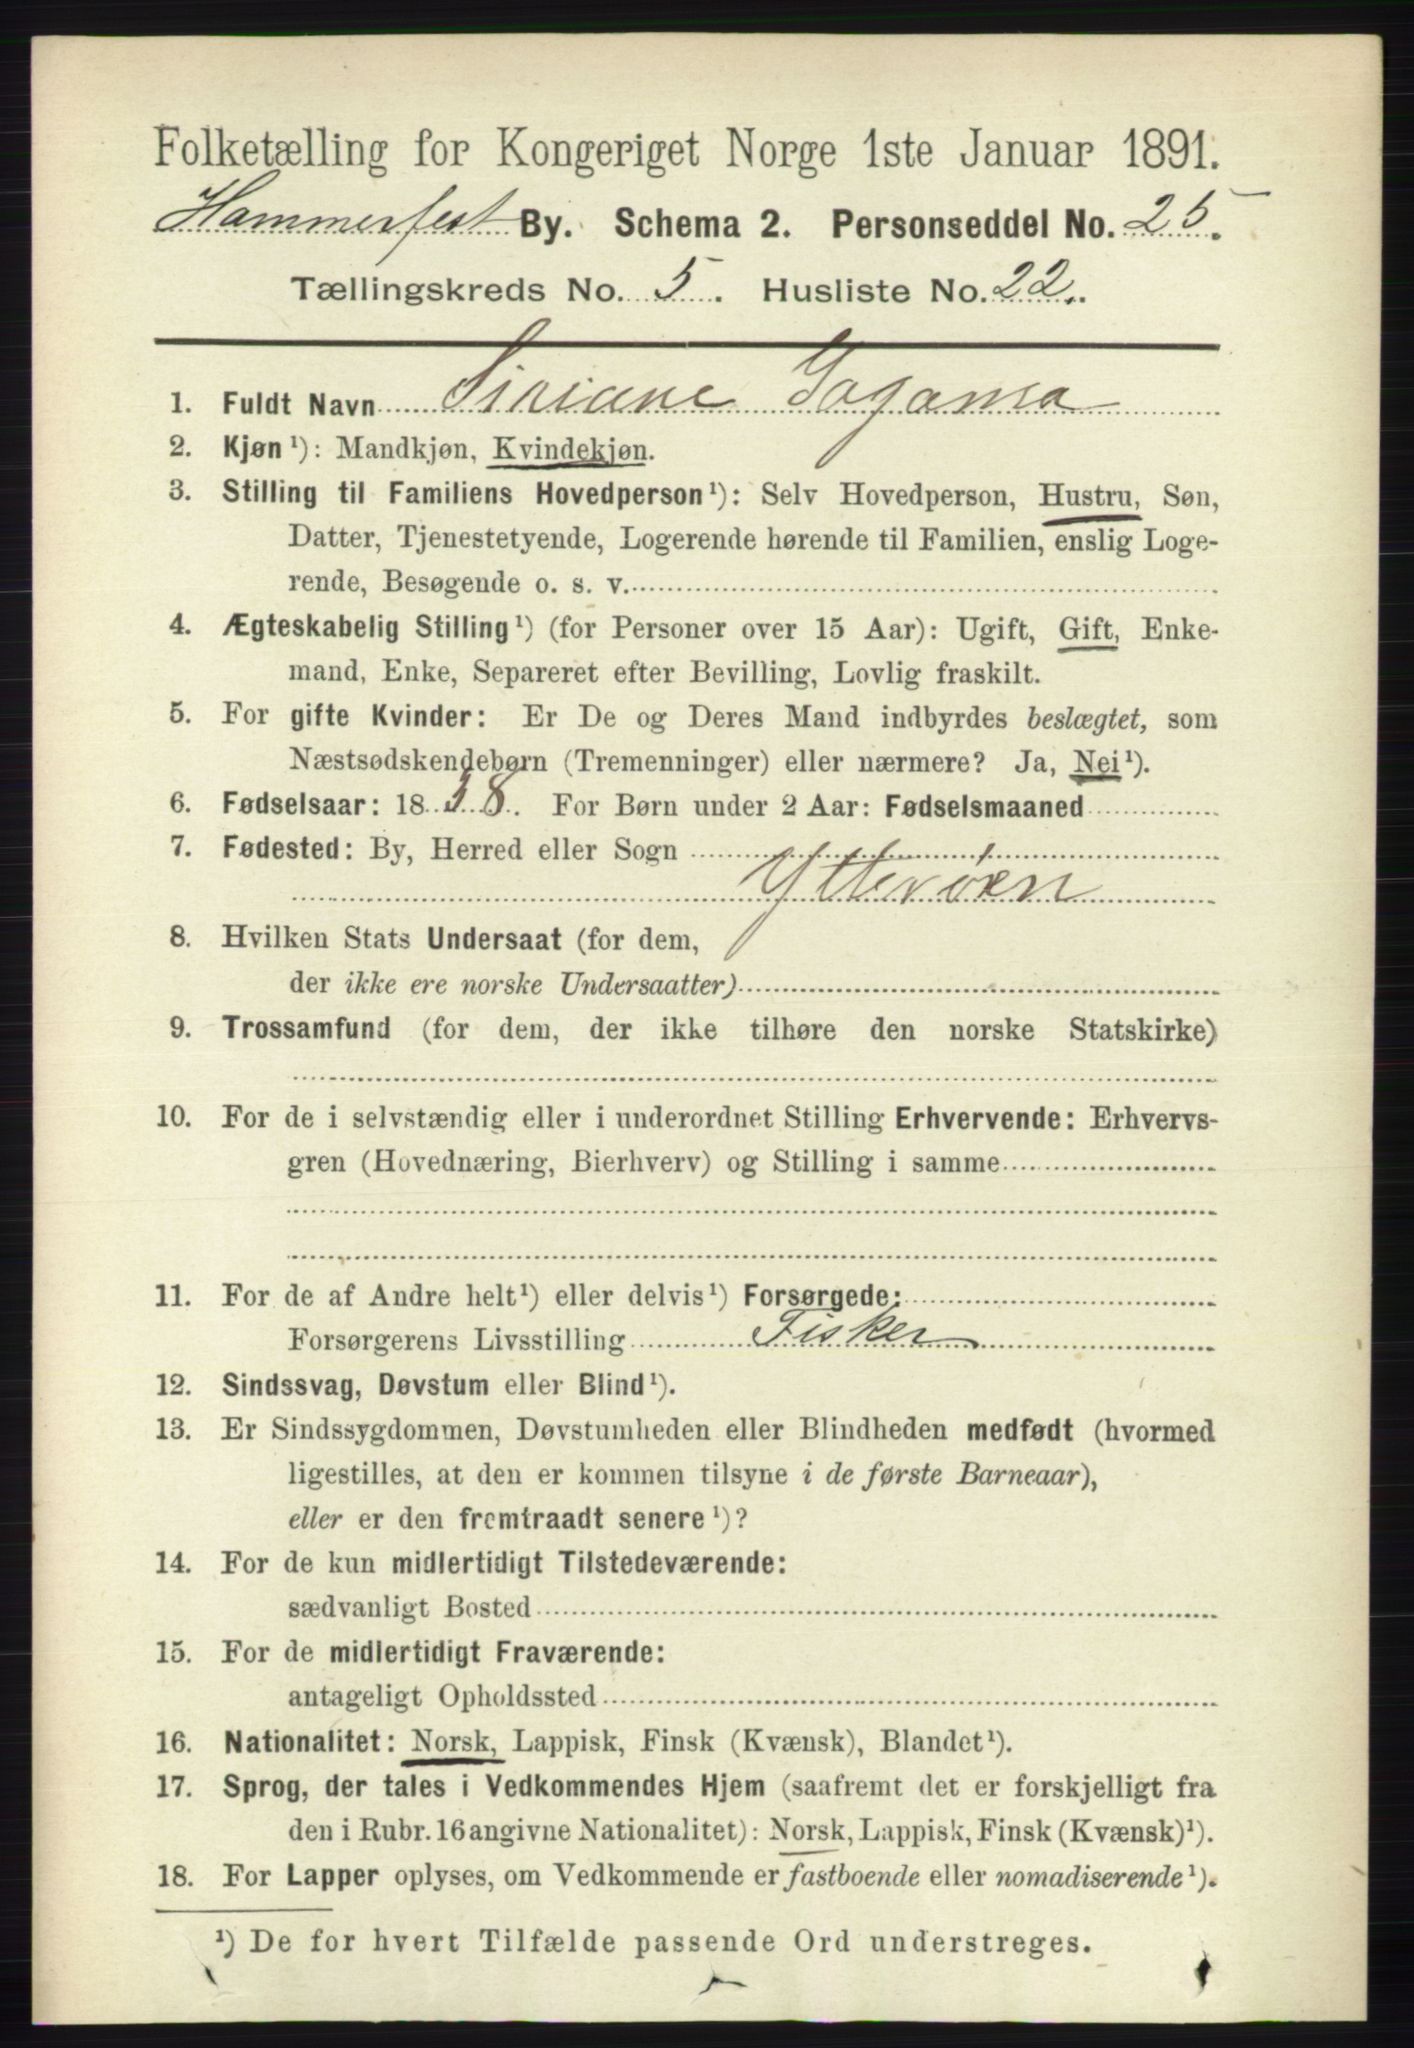 Folketælling for Kongeriget Norge 1ste Januar 1891.
Hammerfest By. Schema 2. Personseddel No. 25.
Tællingskreds No. 5. Husliste No. 22.
1. Fuldt Navn Siriane
2. Kjøn ¹): Mandkjøn, Kvindekjøn.
3. Stilling til Familiens Hovedperson ¹): Selv Hovedperson, Hustru, Søn,
Datter, Tjenestetyende, Logerende hørende til Familien, enslig Loge-
rende, Besøgende o. s. v.
4. Ægteskabelig Stilling ¹) (for Personer over 15 Aar): Ugift, Gift, Enke-
mand, Enke, Separeret efter Bevilling, Lovlig fraskilt.
5. For gifte Kvinder: Er De og Deres Mand indbyrdes beslægtet, som
Næstsødskendebørn (Tremenninger) eller nærmere? Ja, Nei ¹).
6. Fødselsaar: 1838. For Børn under 2 Aar: Fødselsmaaned
7. Fødested: By, Herred eller Sogn
Ytterøen
8. Hvilken Stats Undersaat (for dem,
der ikke ere norske Undersaatter)
9. Trossamfund (for dem, der ikke tilhøre den norske Statskirke)
10. For de i selvstændig eller i underordnet Stilling Erhvervende: Erhvervs-
gren (Hovednæring, Bierhverv) og Stilling i samme
11. For de af Andre helt ¹) eller delvis ¹) Forsørgede:
Forsørgerens Livsstilling Fisker
12. Sindssvag, Døvstum eller Blind ¹).
13. Er Sindssygdommen, Døvstumheden eller Blindheden medfødt (hvormed
ligestilles, at den er kommen tilsyne i de første Barneaar),
eller er den fremtraadt senere ¹)?
14. For de kun midlertidigt Tilstedeværende:
sædvanligt Bosted
15. For de midlertidigt Fraværende:
antageligt Opholdssted
16. Nationalitet: Norsk, Lappisk, Finsk (Kvænsk), Blandet ¹).
17. Sprog, der tales i Vedkommendes Hjem (saafremt det er forskjelligt fra
den i Rubr. 16 angivne Nationalitet): Norsk, Lappisk, Finsk (Kvænsk) ¹).
18. For Lapper oplyses, om Vedkommende er fastboende eller nomadiserende ¹).
¹) De for hvert Tilfælde passende Ord understreges.